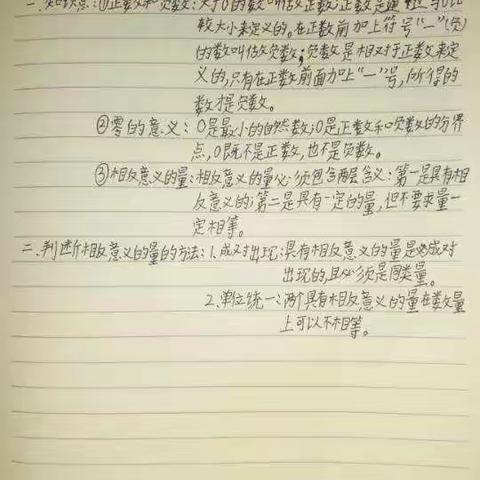 一、知识点:①正数和负数:大于0的数叫做正数,正数是通过与0比
较大小来定义的。在正数前加上符号“一”(负)
的数叫做负数;负数是相对于正数来定
义的,只有在正数前面加上“一”号,所得的
数才是负数。
②零的意义:0是最小的自然数;0是正数和负数的分界
点,0既不是正数,也不是负数。
③相反意义的量:相反意义的量必须包含两层含义:第一是具有相
反意义的;第二是具有一定的量,但不要求量一
定相等。
二、判断相反意义的量的方法:1、成对出现:具有相反意义的量是必成对
出现的,且必须是同类量。
2、统一:两个具有相反意义的量在数量
上可以不相等。